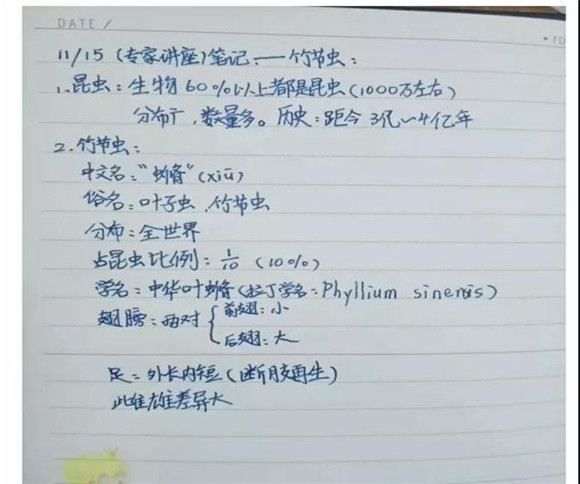 DATE /
11/15 (专家讲座)笔记:—竹节虫:
1.昆虫:生物60%以上都是昆虫(1000万左右)
分布广,数量多。历史:距今3亿~4亿年
2.竹节虫:
中文名:"䗛"(xiū)
俗名:叶子虫、竹节虫
分布:全世界
占昆虫比例:1/10 (10%)
学名:中华叶䗛(拉丁学名:Phyllium sinensis)
翅膀:两对 { 前翅:小
后翅:大
足:外长内短(断肢再生)
雌雄差异大